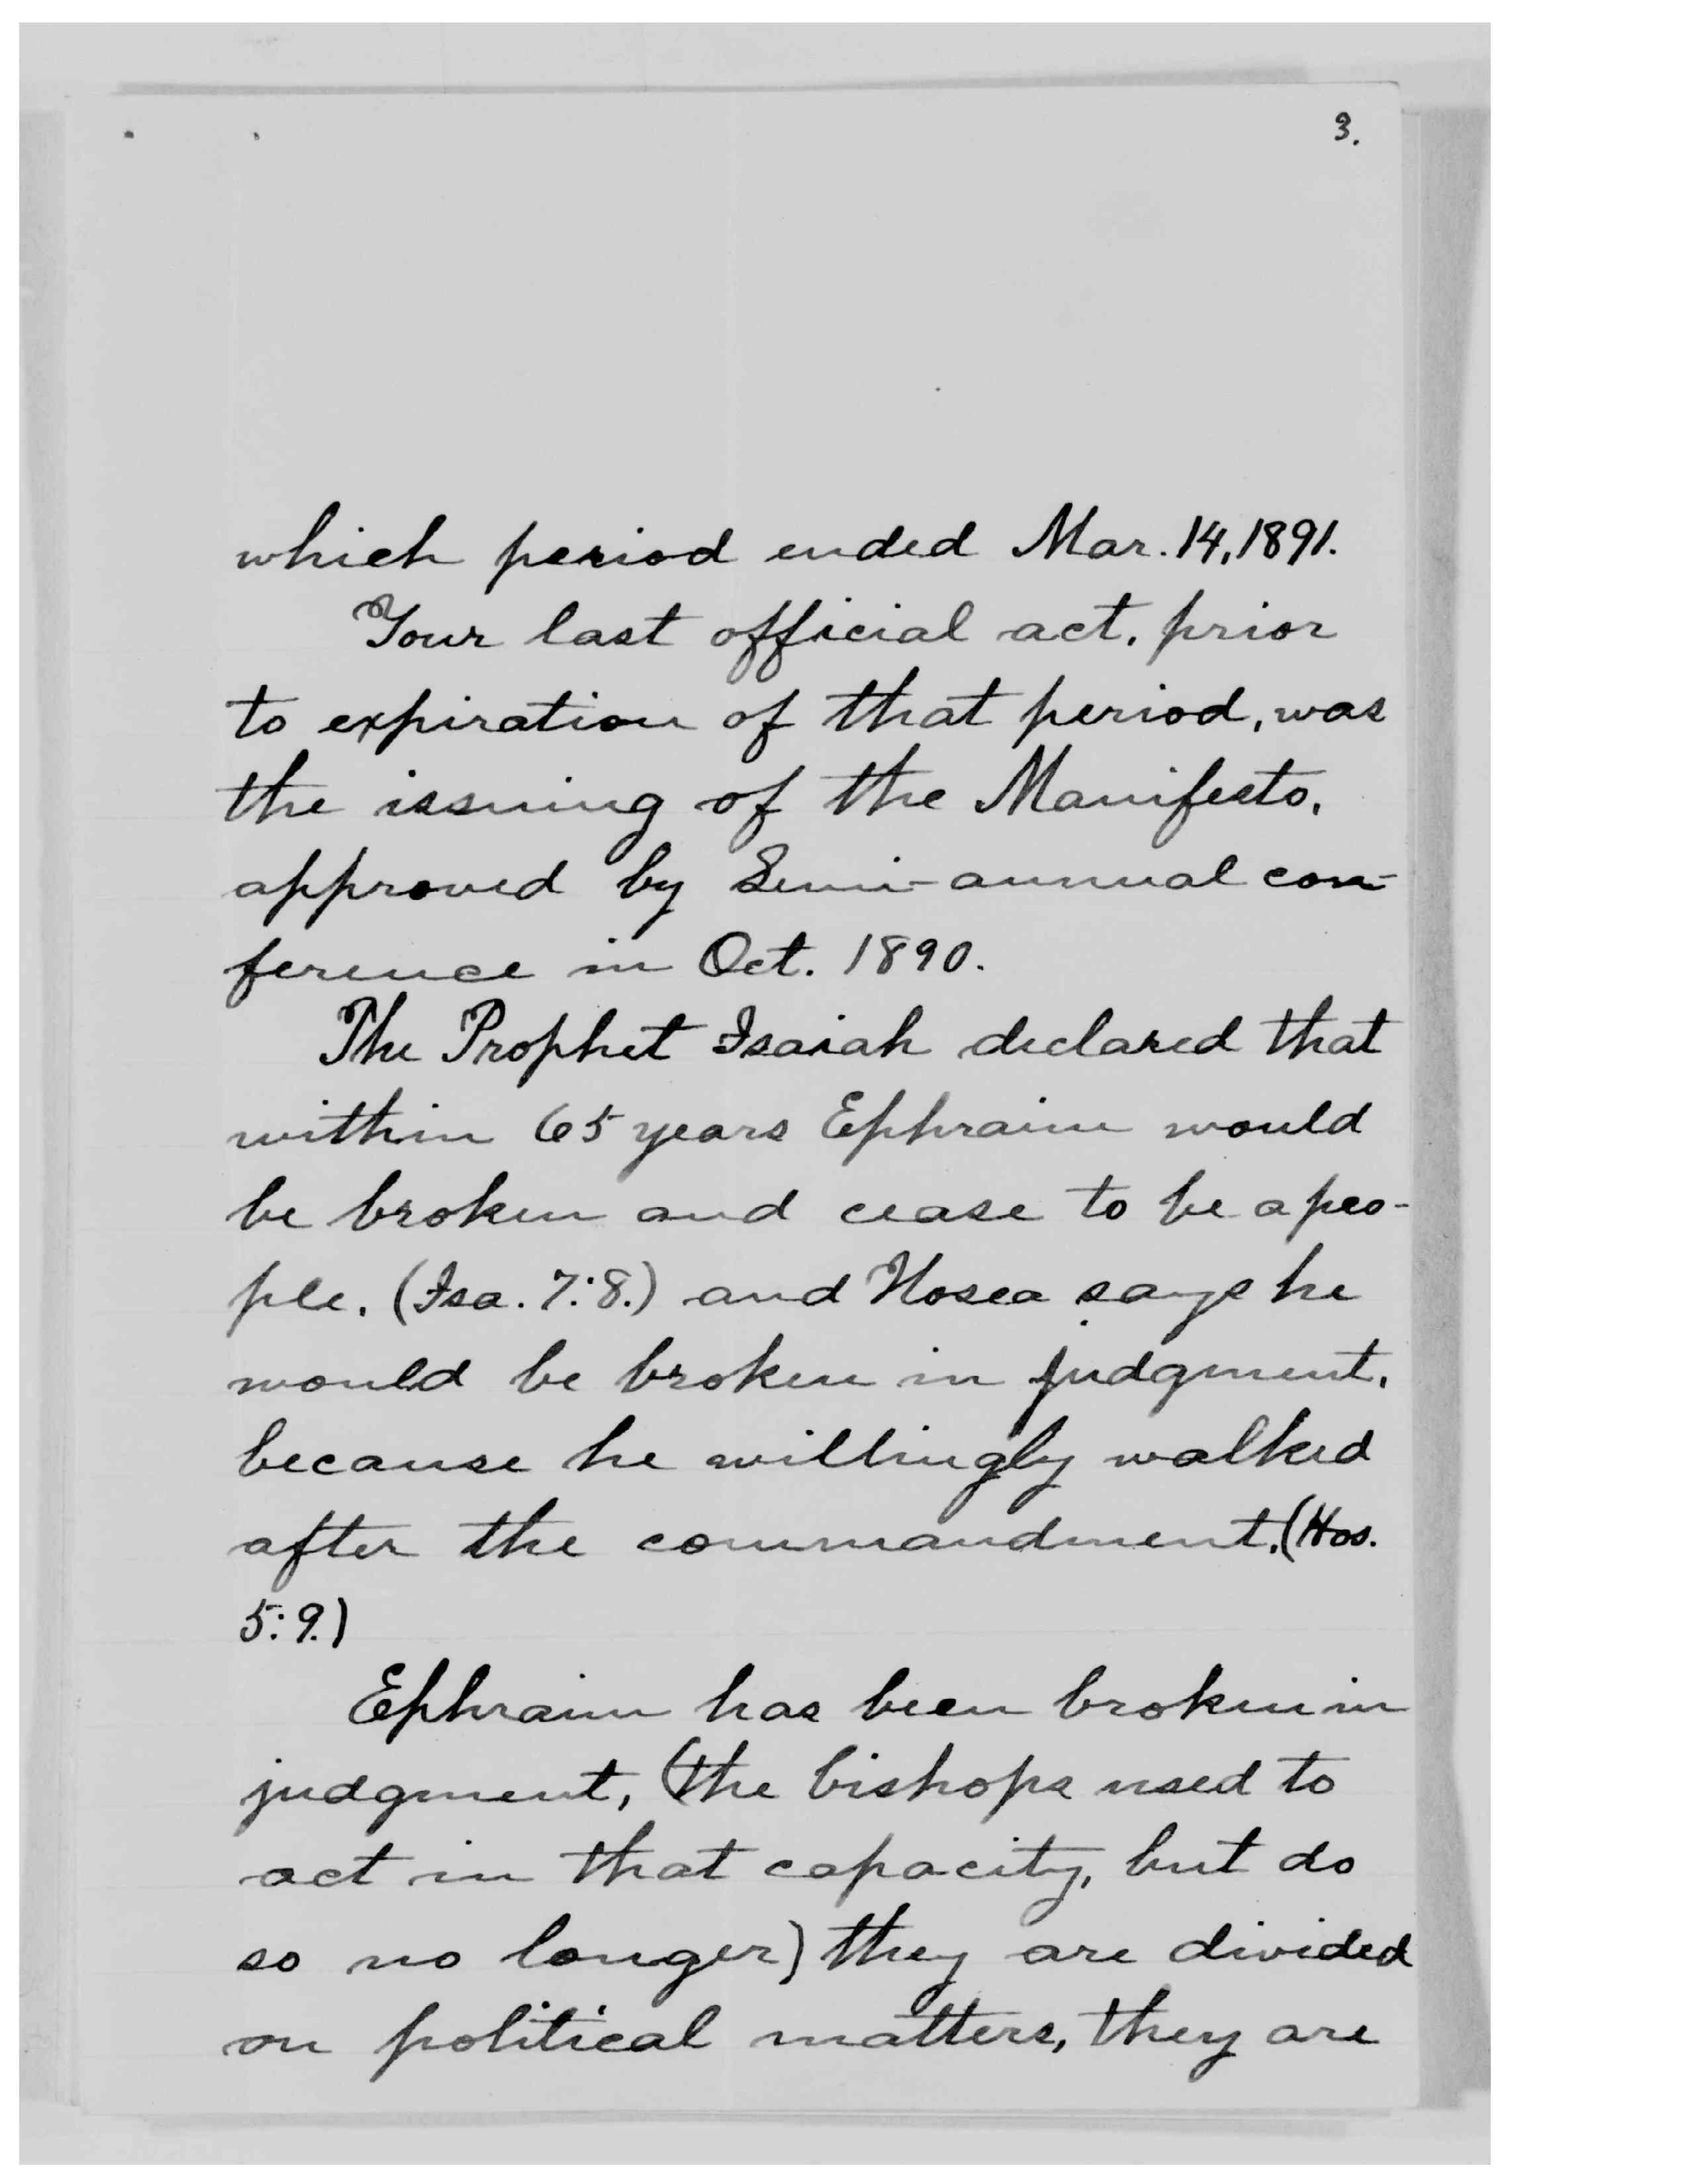 3.
which period ended Mar. 14, 1891.
Your last official act, prior
to expiration of that period, was
the issuing of the Manifesto,
approved by Semi-annual con-
ference in Oct. 1890.
The Prophet Isaiah declared that
within 65 years Ephraim would
be broken and cease to be a peo-
ple. (Isa. 7:8.) and Hosea says he
would be broken in judgment,
because he willingly walked
after the commandment. (Hos.
5:9.)
Ephraim has been broken in
judgment, (the bishops used to
act in that capacity, but do
so no longer) they are divided
on political matters, they are